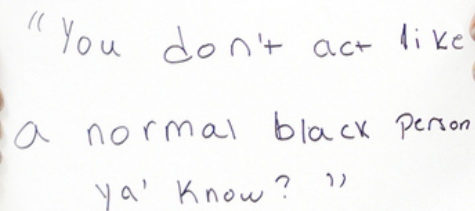 "You don't act like
a normal black person
ya' know? "